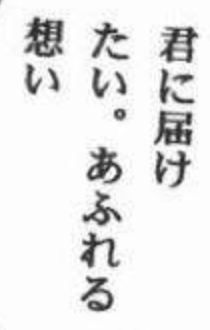 君に届け
たい。あふれる
想い